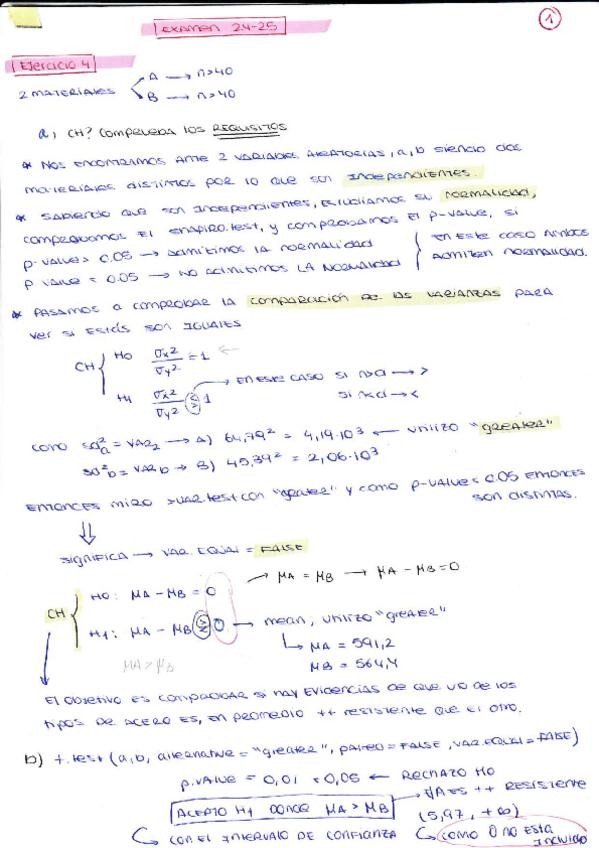 EXAMEN 24-25
1
Ejercicio 4
2 MATERIALES A → n>40
B → n>40
a, CH? COMPRUEBA LOS REQUISITOS
* NOS ENCONTRAMOS ANTE 2 VARIABLES ALEATORIAS, a, b SIENDO DOS
MATERIALES DISTINTOS POR LO QUE SON INDEPENDIENTES.
* SABIENDO QUE SON INDEPENDIENTES, ESTUDIAMOS SU NORMALIDAD,
COMPROBAMOS EL SHAPIRO.TEST, Y COMPROBAMOS EL P-VALUE, SI
P-VALUE > 0.05 → ADMITIMOS LA NORMALIDAD
P VALUE < 0.05 → NO ADMITIMOS LA NORMALIDAD
EN ESTE CASO AMBOS
ADMITEN NORMALIDAD.
* PASAMOS A COMPROBAR LA COMPARACIÓN DE LAS VARIANZAS PARA
VER SI ESTAS SON IGUALES
CH H0 σx²/σy² = 1 ←
H1 σx²/σy² ≷ 1 → EN ESTE CASO SI n>d → >
SI n<d → <
COMO sd²a = VARa → A) 64,79² = 4,19·10³ ← UTILIZO "GREATER"
sd²b = VARb → B) 45,39² = 2,06·10³
ENTONCES MIRO >VAR.TEST CON "GREATER" Y COMO P-VALUE < 0.05 ENTONCES
SON DISTINTAS.
⇓
SIGNIFICA → VAR.EQUAL = FALSE
CH H0: MA - MB = 0 → MA = MB → MA - MB = 0
H1: MA - MB ≷ 0 → mean, UTILIZO "GREATER"
↳ MA = 591,2
MB = 564,4
MA > MB
EL OBJETIVO ES COMPROBAR SI HAY EVIDENCIAS DE QUE UNO DE LOS
TIPOS DE ACERO ES, EN PROMEDIO ++ RESISTENTE QUE EL OTRO.
b) t.test (a,b, alternative = "greater", PAIRED = FALSE, VAR.EQUAL = FALSE)
P.VALUE = 0,01 < 0,05 ← RECHAZO H0
ACEPTO H1 DONDE MA > MB → A ES ++ RESISTENTE
(5,97, +∞)
↳ CON EL INTERVALO DE CONFIANZA ↳ COMO 0 NO ESTA
INCLUIDO